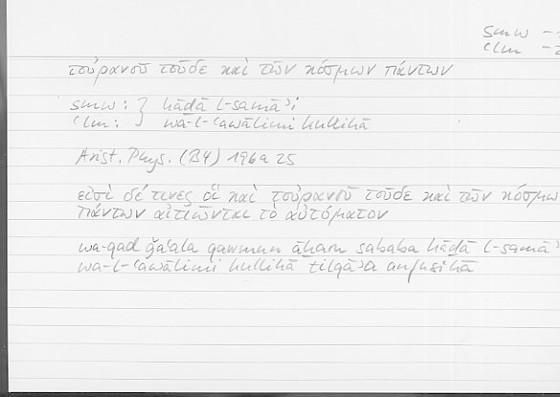 smw –
clm –
τοὐρανοῦ τοῦδε καὶ τῶν κόσμων πάντων
smw : } hāḏā l-samāʾi
clm : } wa-l-ʿawālimi kullihā
Arist. Phys. (B4) 196a25
εἰσὶ δέ τινες οἳ καὶ τοὐρανοῦ τοῦδε καὶ τῶν κόσμω
πάντων αἰτιῶνται τὸ αὐτόματον
wa-qad ǧaʿala qawmun āḫaru sababa hāḏā l-samāʾ
wa-l-ʿawālimi kullihā tilqāʾa anfusihā